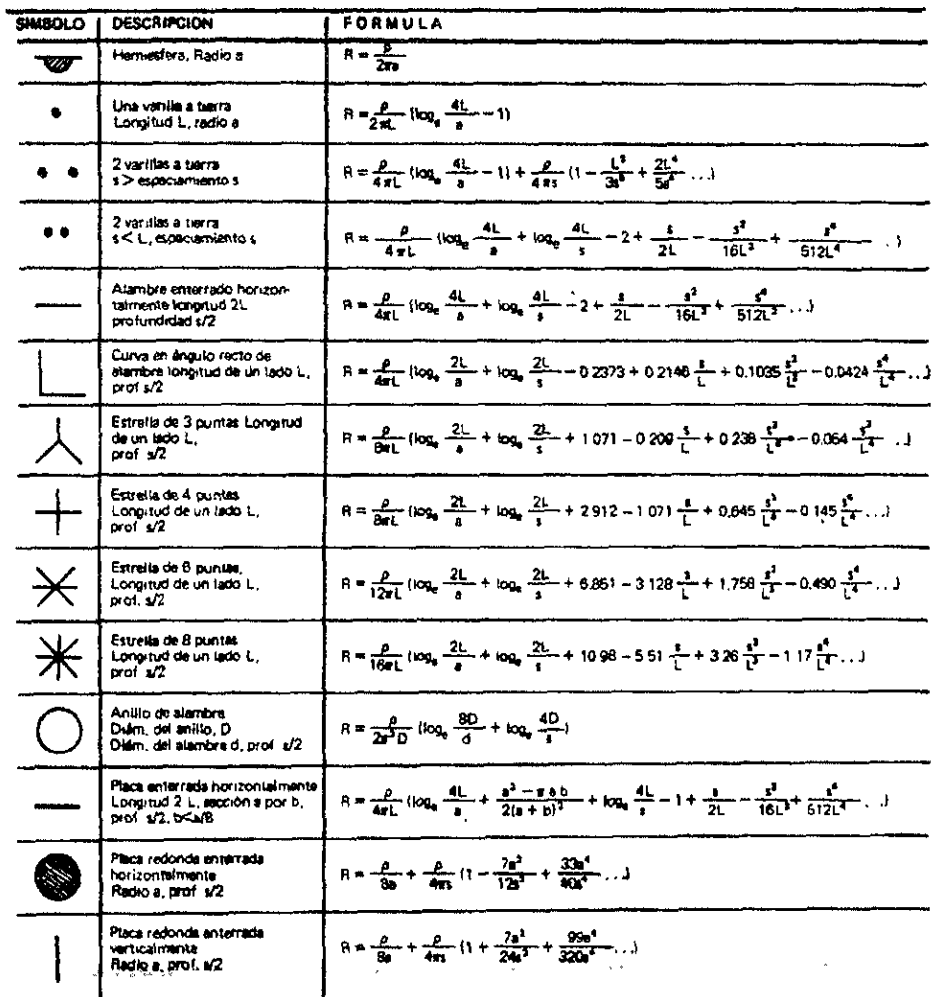 SIMBOLO DESCRIPCION FORMULA
Hemiesfera, Radio a R = ρ/2πa
Una varilla a tierra
Longitud L, radio a R = ρ/2πL (logₑ 4L/a − 1)
2 varillas a tierra
s > espaciamiento s R = ρ/4πL (logₑ 4L/a − 1) + ρ/4πs (1 − L²/3s² + 2L⁴/5s⁴ ...)
2 varillas a tierra
s < L, espaciamiento s R = ρ/4πL (logₑ 4L/a + logₑ 4L/s − 2 + s/2L − s²/16L² + s⁴/512L⁴ ...)
Alambre enterrado horizon-
talmente longitud 2L
profundidad s/2 R = ρ/4πL (logₑ 4L/a + logₑ 4L/s − 2 + s/2L − s²/16L² + s⁴/512L⁴ ...)
Curva en ángulo recto de
alambre longitud de un lado L,
prof s/2 R = ρ/4πL (logₑ 2L/a + logₑ 2L/s − 0 2373 + 0 2146 s/L + 0.1035 s²/L² − 0.0424 s⁴/L⁴ ...)
Estrella de 3 puntas Longitud
de un lado L,
prof s/2 R = ρ/8πL (logₑ 2L/a + logₑ 2L/s + 1 071 − 0 209 s/L + 0 238 s²/L² − 0.054 s⁴/L⁴ ...)
Estrella de 4 puntas
Longitud de un lado L,
prof s/2 R = ρ/8πL (logₑ 2L/a + logₑ 2L/s + 2 912 − 1 071 s/L + 0,645 s²/L² − 0 145 s⁴/L⁴ ...)
Estrella de 6 puntas,
Longitud de un lado L,
prof. s/2 R = ρ/12πL (logₑ 2L/a + logₑ 2L/s + 6.851 − 3 128 s/L + 1,758 s²/L² − 0.490 s⁴/L⁴ ...)
Estrella de 8 puntas
Longitud de un lado L,
prof s/2 R = ρ/16πL (logₑ 2L/a + logₑ 2L/s + 10 98 − 5 51 s/L + 3 26 s³/L³ − 1 17 s⁴/L⁴ ...)
Anillo de alambre
Diám. del anillo, D
Diám. del alambre d, prof s/2 R = ρ/2π²D (logₑ 8D/d + logₑ 4D/s)
Placa enterrada horizontalmente
Longitud 2 L, sección a por b,
prof s/2, b<a/8 R = ρ/4πL (logₑ 4L/a + a² − π a b/2(a + b)² + logₑ 4L/s − 1 + s/2L − s²/16L² + s⁴/512L⁴ ...)
Placa redonda enterrada
horizontalmente
Radio a, prof s/2 R = ρ/8a + ρ/4πs (1 − 7a²/12s² + 33a⁴/40s⁴ ...)
Placa redonda enterrada
verticalmente
Radio a, prof. s/2 R = ρ/8a + ρ/4πs (1 + 7a²/24s² + 99a⁴/320s⁴ ...)